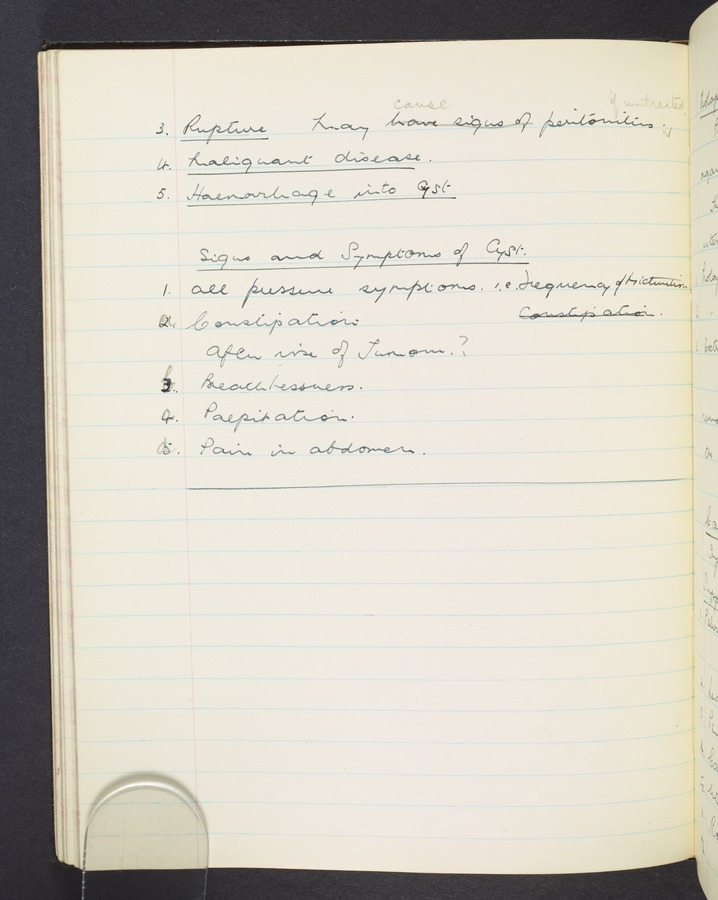 cause if untreated
3. Rupture may have signs of peritonitis.
4. Malignant disease.
5. Haemorrhage into Cyst
Signs and Symptoms of Cyst.
1. All pressure symptoms. i.e. frequency of Micturition
2. Constipation Constipation.
After rise of Tumour.?
3. Breathlessness.
4. Palpitation.
5. Pain in abdomen.